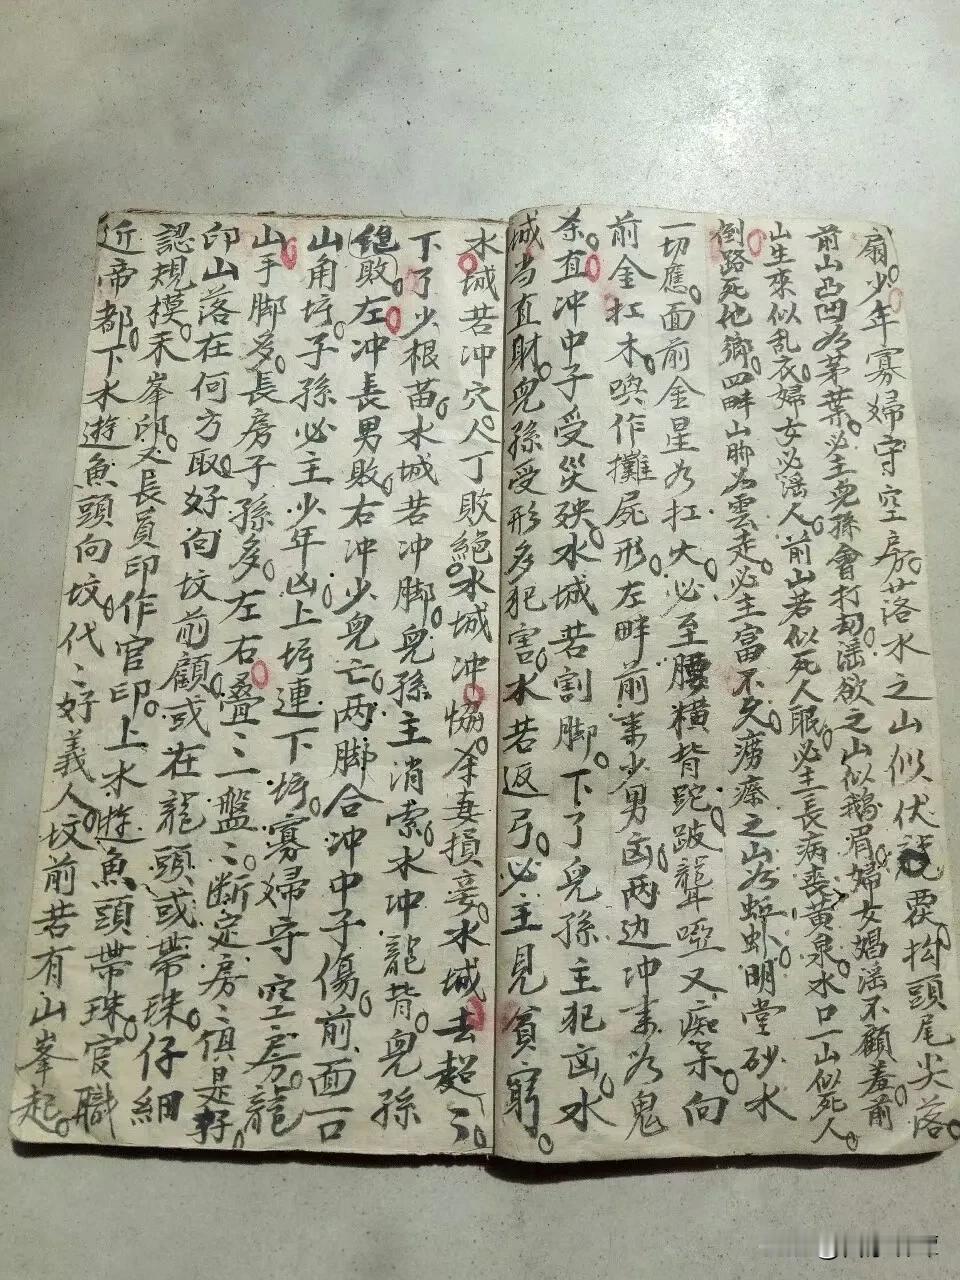 扇。少年寡婦守空房。落水之山似伏 要拘頭尾尖落。
前山凸凹为茅葉。必主兒孫會打刧。滛欲之山似鵝眉。婦女娼滛不顧羞。前
山生來似乱衣。婦女必滛人。前山若似死人眠。必主長病喪黄泉。水口一山似死人。
倒路死他鄉。四畔山脚为雲走。必主富不久。痨瘵之山为蚯蚓。明堂砂水
一切應。面前金星为扛大。必至腰糢背跎跛聾啞又痴呆。向
前金扛木。喚作攤屍形。左畔前来少男凶。两边冲来为鬼
杀。直冲中子受災殃。水城若割脚。下了兒孫主犯凶。水
城当直財。兒孫受形多犯害。水若返弓。必主見貧窮。
水城若冲穴。人丁敗絶。水城冲脇。杀妻損妾。水城去超ミ
下了少根苗。水城若冲脚。兒孫主消索。水冲龍背。兒孫
絶敗。左冲長男敗。右冲少兒亡。两脚合冲中子傷。前面一
山角圢。子孫必主少年凶。上圢連下圢。寡婦守空房。龍
山手脚多。長房子孫多。左右叠ミ二盤ミ。断定房ミ俱是好。
印山落在何方。取好向坟前顧。或在龍頭或帶珠。仔細
認規模。禾峯印。又長員印作官印。上水遊魚頭帶珠。官職
近帝都。下水遊魚頭向坟。代ミ好義人。坟前若有山峯起。